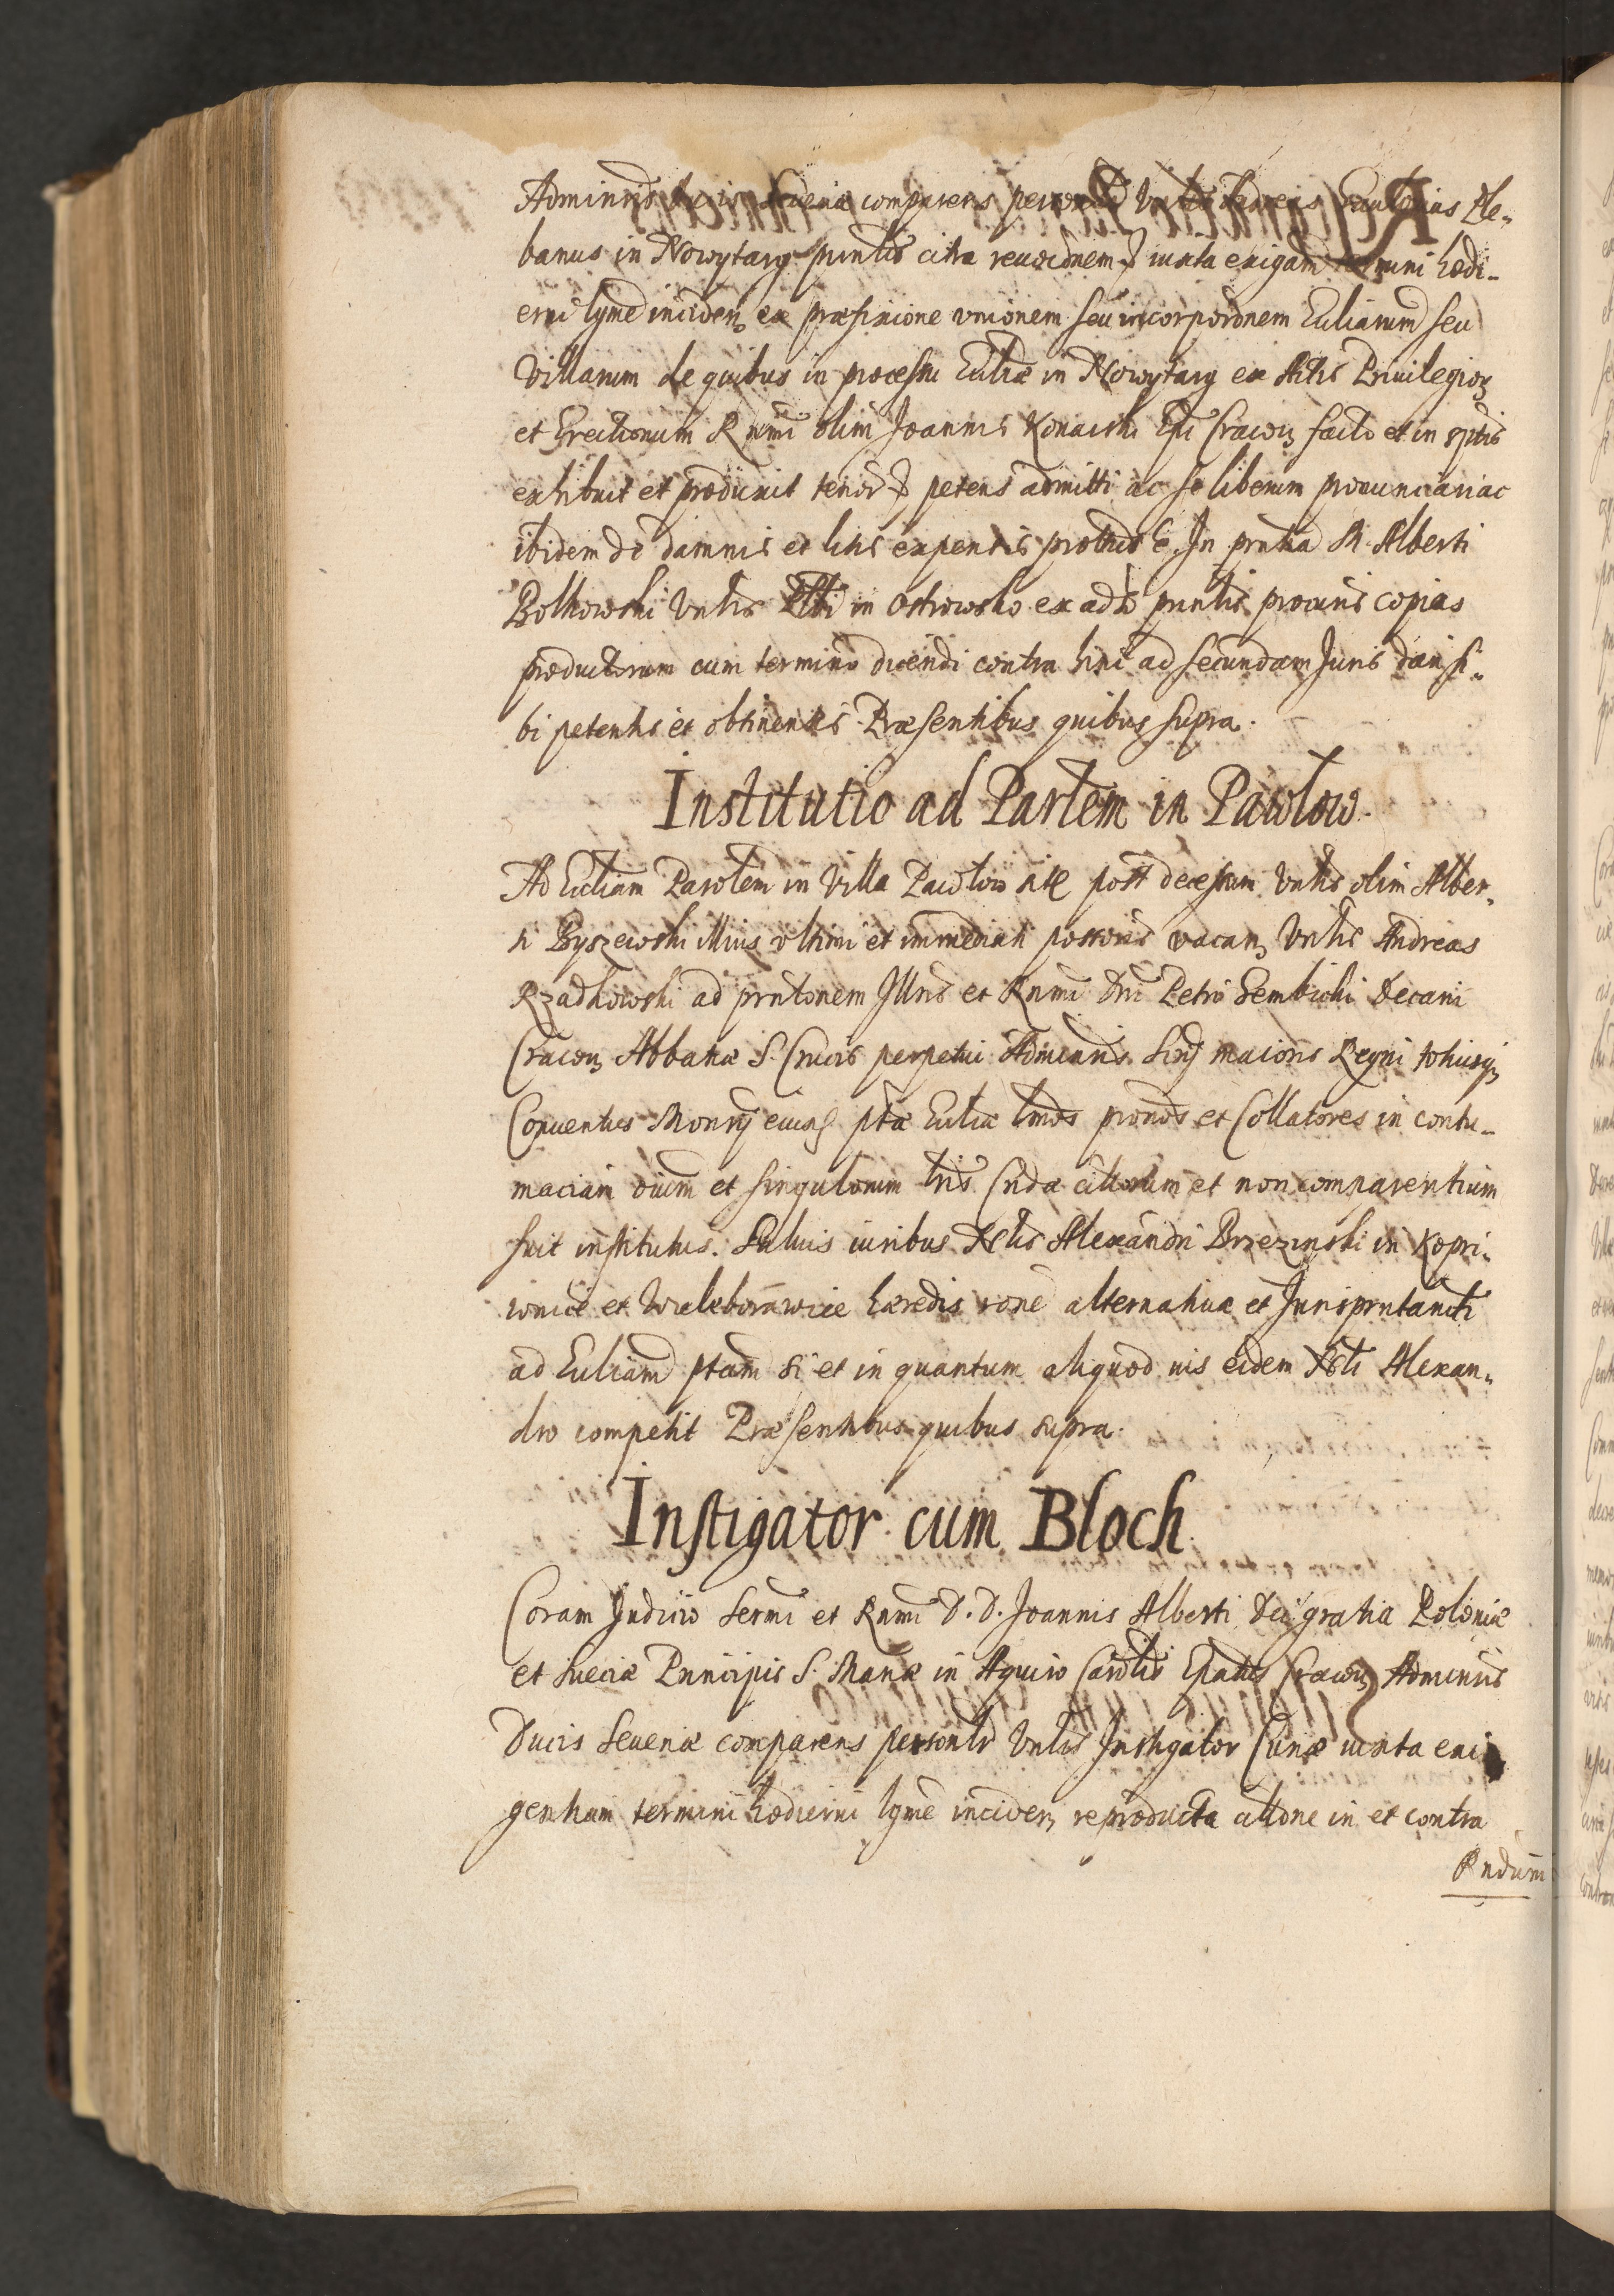 Administris Ducis Seueriæ comparens personlr Vnlis Andreas Ple-
banus in Nowytarg puntis citra reuocionem iuxta exigam termini hodi-
erni lgme inciden ex præfixione vnionem seu incorporonem Eccliarum seu
Villarum de quibus in processu Eccliæ in Nowytarg ex Actis Priuilegior
et Erectionum Rnmi olim Joannis Konarski Epi Cracou facto et in
exhibuit et produxit tenor petens admitti ac se liberum pronunciari ac
ibidem de damnis et litis expensis prottnd e. In pntia R. Alberti
Bolkowski Vnlis Plbi in Ostrowsko ex adso puntis procuris copias
productorum cum termino dicendi contra hinc ad secundam Juris dari si-
bi petentis et obtinentis Præsentibus quibus supra.
Institutio ad Parlem in Pawlow.
Ad Eccliam Parolem in Villa Pawlow site post decessum Vnlis olim Alber-
ti Byszewski illius vltimi et immediati possoris vacan Vnlis Andreas
Rzadkowski ad prntonem Illris et Rnmi Dni Petri Gembicki Decani
Cracou Abbatiæ S. Crucis perpetui Administris Srij maioris Regni totiusq
Conuentus Monrij eiusd ptæ Eccliæ lmos pronos et Collatores in contu-
maciam ouim et singulorum lris Crida cittorum et non comparentium
fuit institutus. Saluis iuribus Nlis Alexandri Brzezinski in Kopri-
wnice et Wieleborowice hæredis rone alternatiuæ et Jurisprntandi
ad Eccliam ptam si et in quantum aliquod ius eidem Nli Alexan-
dro competit Præsentibus quibus supra.
Instigator cum Bloch
Coram Judicio Sermi et Rnmi D. D. Joannis Alberti Dei gratia Poloniæ
et Sueciæ Principis S. Mariæ in Aquiro Cardlis Epatus Cracou Administris
Ducis Seueriæ comparens personlr Vnlis Instigator Curiæ iuxta exi
gentiam termini hodierni lgme inciden reproducta cittone in et contra
Rndum